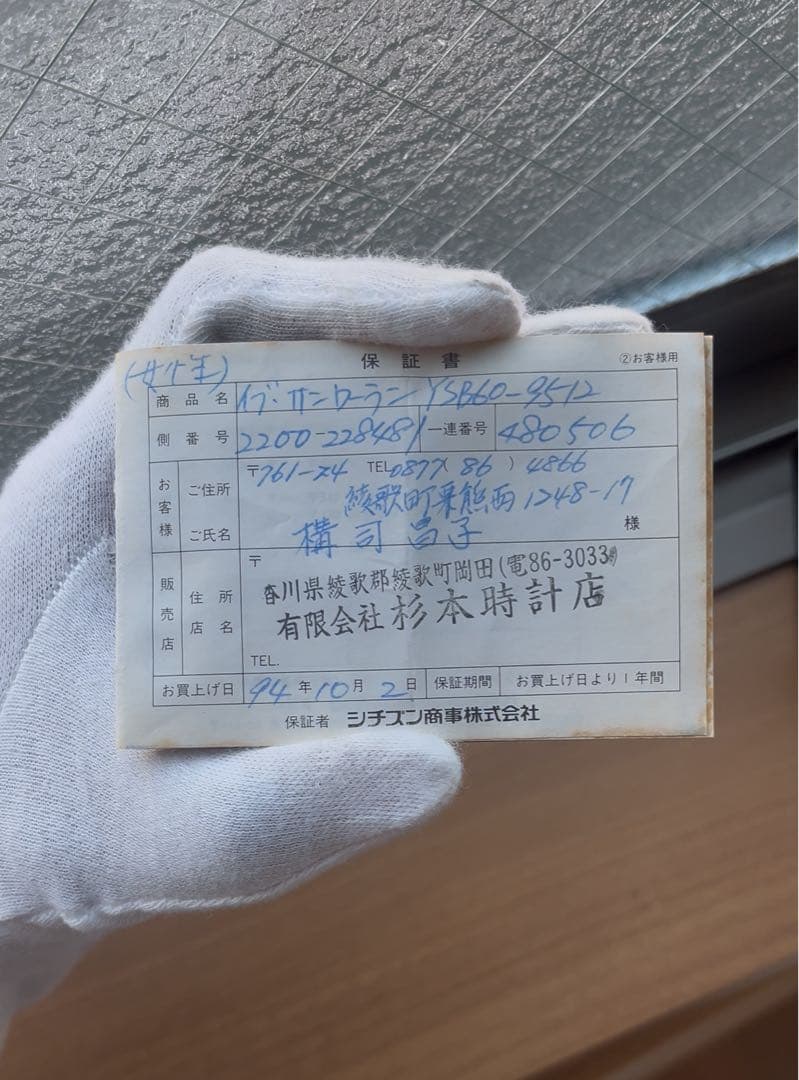 保証書 ②お客様用
商品名 イブ・サンローラン YSB60-9512
側番号 2200-228481 一連番号 480506
お客様 ご住所 〒761-24 TEL 0877( 86 ) 4866
綾歌町栗熊西1248-17
ご氏名 構司昌子 様
販売店 住所 店名 〒
香川県綾歌郡綾歌町岡田(電86-3033)
有限会社杉本時計店
TEL.
お買上げ日 94年10月2日 保証期間 お買上げ日より1年間
保証者 シチズン商事株式会社